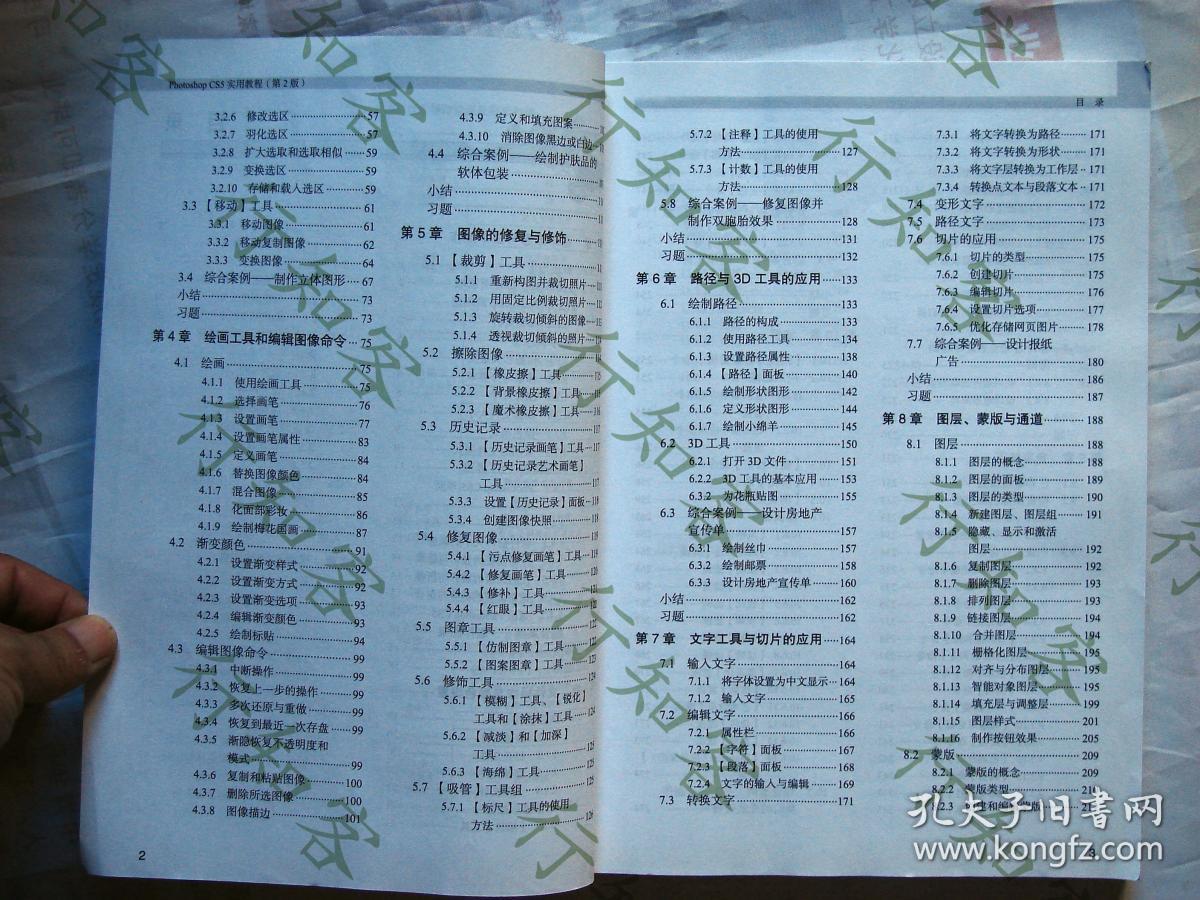 Photoshop CS5 实用教程(第2版)
3.2.6 修改选区 57
3.2.7 羽化选区 57
3.2.8 扩大选取和选取相似 59
3.2.9 变换选区 59
3.2.10 存储和载入选区 59
3.3 【移动】工具 61
3.3.1 移动图像 61
3.3.2 移动复制图像 62
3.3.3 变换图像 64
3.4 综合案例——制作立体图形 67
小结 73
习题 73
第4章 绘画工具和编辑图像命令 75
4.1 绘画 75
4.1.1 使用绘画工具 75
4.1.2 选择画笔 76
4.1.3 设置画笔 77
4.1.4 设置画笔属性 83
4.1.5 定义画笔 84
4.1.6 替换图像颜色 84
4.1.7 混合图像 85
4.1.8 化面部彩妆 86
4.1.9 绘制梅花国画 87
4.2 渐变颜色 91
4.2.1 设置渐变样式 92
4.2.2 设置渐变方式 92
4.2.3 设置渐变选项 93
4.2.4 编辑渐变颜色 93
4.2.5 绘制标贴 94
4.3 编辑图像命令 99
4.3.1 中断操作 99
4.3.2 恢复上一步的操作 99
4.3.3 多次还原与重做 99
4.3.4 恢复到最近一次存盘 99
4.3.5 渐隐恢复不透明度和
模式 99
4.3.6 复制和粘贴图像 100
4.3.7 删除所选图像 100
4.3.8 图像描边 101
2
4.3.9 定义和填充图案
4.3.10 消除图像黑边或白边
4.4 综合案例——绘制护肤品的
软体包装
小结
习题
第5章 图像的修复与修饰
5.1 【裁剪】工具
5.1.1 重新构图并裁切照片
5.1.2 用固定比例裁切照片
5.1.3 旋转裁切倾斜的图像
5.1.4 透视裁切倾斜的照片
5.2 擦除图像
5.2.1 【橡皮擦】工具
5.2.2 【背景橡皮擦】工具
5.2.3 【魔术橡皮擦】工具 116
5.3 历史记录 117
5.3.1 【历史记录画笔】工具 117
5.3.2 【历史记录艺术画笔】
工具 117
5.3.3 设置【历史记录】面板 118
5.3.4 创建图像快照 118
5.4 修复图像 119
5.4.1 【污点修复画笔】工具 119
5.4.2 【修复画笔】工具 120
5.4.3 【修补】工具
5.4.4 【红眼】工具
5.5 图章工具
5.5.1 【仿制图章】工具
5.5.2 【图案图章】工具
5.6 修饰工具 124
5.6.1 【模糊】工具、【锐化】
工具和【涂抹】工具 124
5.6.2 【减淡】和【加深】
工具 125
5.6.3 【海绵】工具 125
5.7 【吸管】工具组 125
5.7.1 【标尺】工具的使用
方法 126
目 录
5.7.2 【注释】工具的使用
方法 127
5.7.3 【计数】工具的使用
方法 128
5.8 综合案例——修复图像并
制作双胞胎效果 128
小结 131
习题 132
第6章 路径与3D工具的应用 133
6.1 绘制路径 133
6.1.1 路径的构成 133
6.1.2 使用路径工具 134
6.1.3 设置路径属性 138
6.1.4 【路径】面板 140
6.1.5 绘制形状图形 142
6.1.6 定义形状图形 144
6.1.7 绘制小绵羊 145
6.2 3D工具 150
6.2.1 打开3D文件 151
6.2.2 3D工具的基本应用 153
6.3.2 为花瓶贴图 155
6.3 综合案例——设计房地产
宣传单 157
6.3.1 绘制丝巾 157
6.3.2 绘制邮票 158
6.3.3 设计房地产宣传单 160
小结 162
习题 162
第7章 文字工具与切片的应用 164
7.1 输入文字 164
7.1.1 将字体设置为中文显示 164
7.1.2 输入文字 165
7.2 编辑文字 166
7.2.1 属性栏 166
7.2.2 【字符】面板 167
7.2.3 【段落】面板 168
7.2.4 文字的输入与编辑 169
7.3 转换文字 171
7.3.1 将文字转换为路径 171
7.3.2 将文字转换为形状 171
7.3.3 将文字层转换为工作层 171
7.3.4 转换点文本与段落文本 171
7.4 变形文字 172
7.5 路径文字 173
7.6 切片的应用 175
7.6.1 切片的类型 175
7.6.2 创建切片 175
7.6.3 编辑切片 176
7.6.4 设置切片选项 177
7.6.5 优化存储网页图片 178
7.7 综合案例——设计报纸
广告 180
小结 186
习题 187
第8章 图层、蒙版与通道 188
8.1 图层 188
8.1.1 图层的概念 188
8.1.2 图层的面板 189
8.1.3 图层的类型 190
8.1.4 新建图层、图层组 191
8.1.5 隐藏、显示和激活
图层 192
8.1.6 复制图层 192
8.1.7 删除图层 193
8.1.8 排列图层 193
8.1.9 链接图层 194
8.1.10 合并图层 194
8.1.11 栅格化图层 195
8.1.12 对齐与分布图层 195
8.1.13 智能对象图层 195
8.1.14 填充层与调整层 199
8.1.15 图层样式 201
8.1.16 制作按钮效果 205
8.2 蒙版 209
8.2.1 蒙版的概念 209
8.2.2 蒙版类型 210
8.2.3
3
行知客
孔夫子旧书网
www.kongfz.com